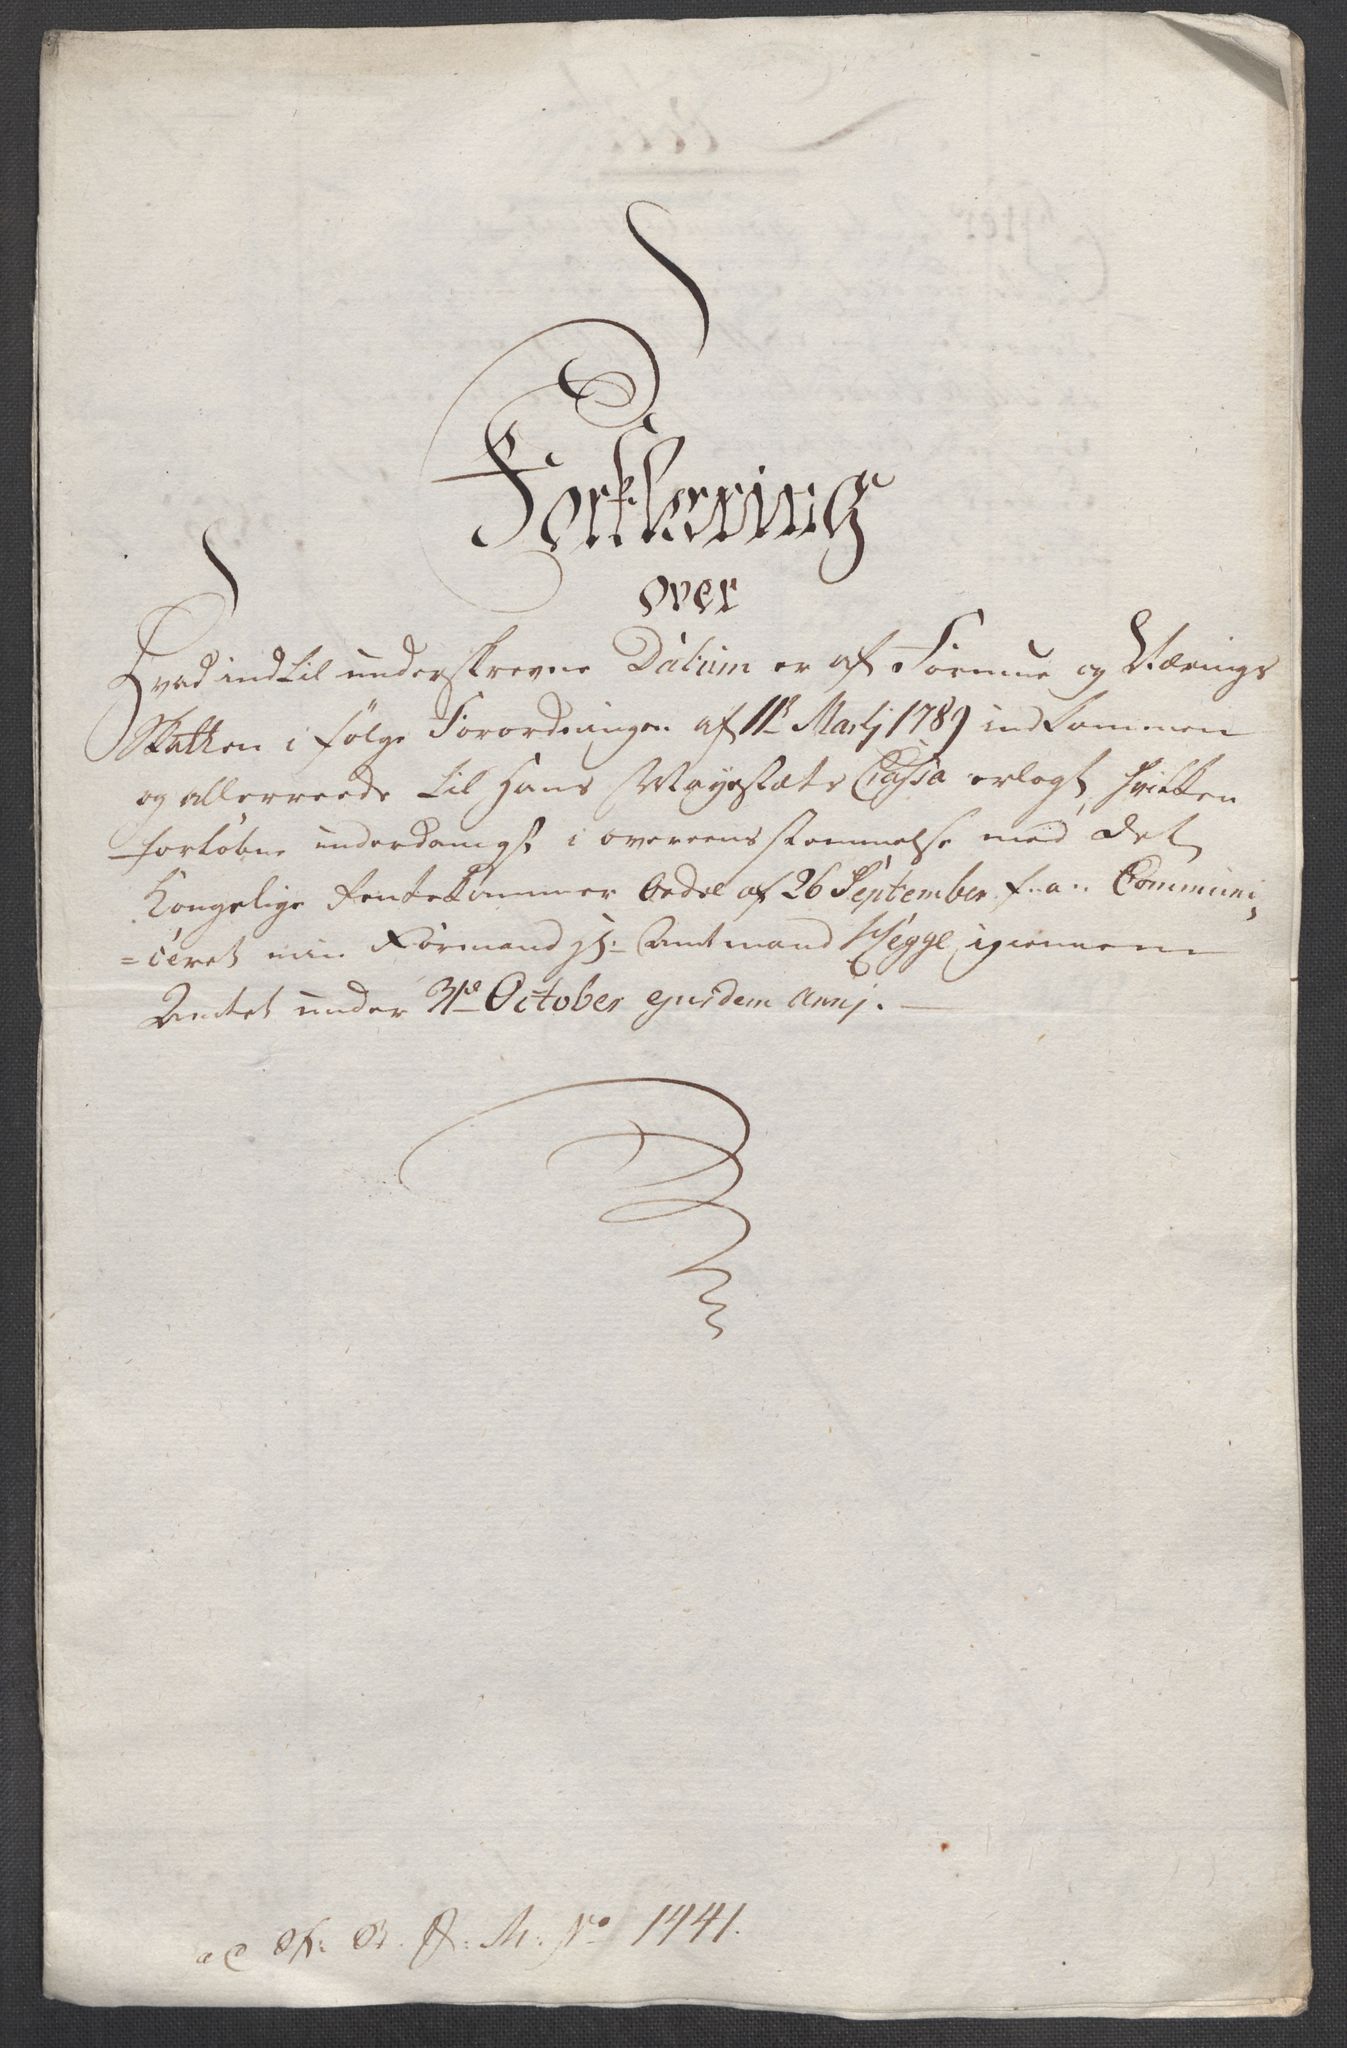 Forklæring
over
Hvad indtil underskrevne Datum er af Formue og Nærings
Skatten i følge Forordningen af 11te Martj 1789 indkommen
og allerreede til Hans Mayestæts Cassa erlagt, hvilken
forløbne underdanigst i overeensstemmelse med det
Kongelige Rentekammer Ordre af 26 September f: a: Communi,
=ceret min Formand Hr: Amtmand Hegge igiennem
Amtet under 31de October ejusdem Annj.
ad No 1441.